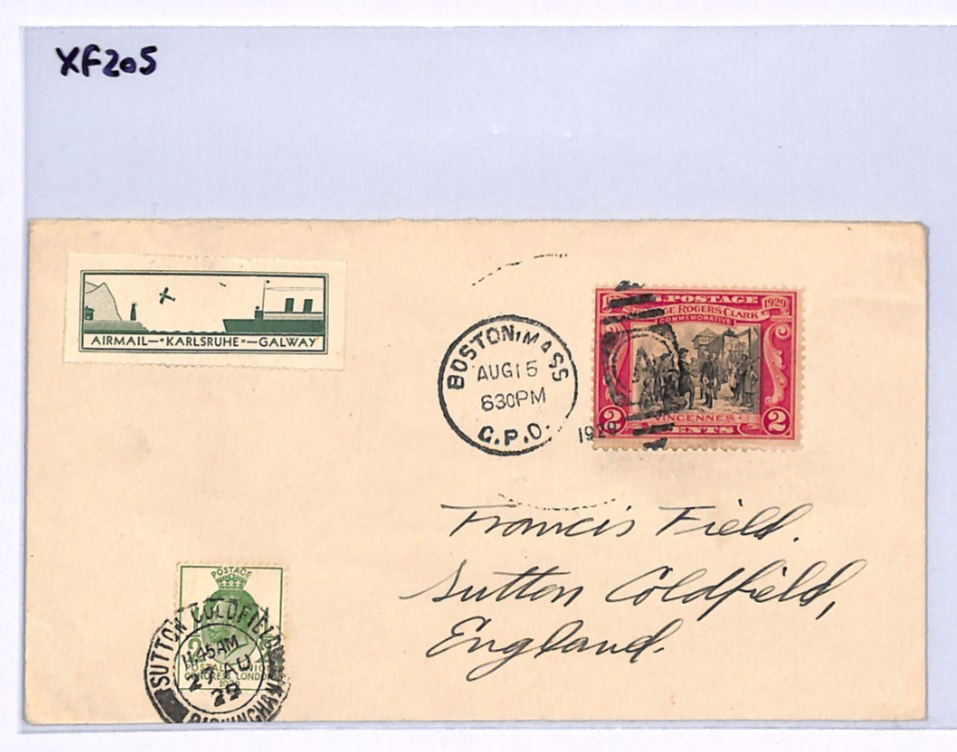 XF205
AIRMAIL—"KARLSRUHE"—GALWAY
BOSTON, MASS
AUG 15
630PM
G.P.O.
1929
U.S. POSTAGE 1929
ROGERS CLARK
COMMEMORATIVE
VINCENNES
2 CENTS 2
Francis Field.
Sutton Coldfield,
England.
POSTAGE
SUTTON COLDFIELD
11.45AM
27 AU
29
BIRMINGHAM
POSTAL UNION
CONGRESS LONDON